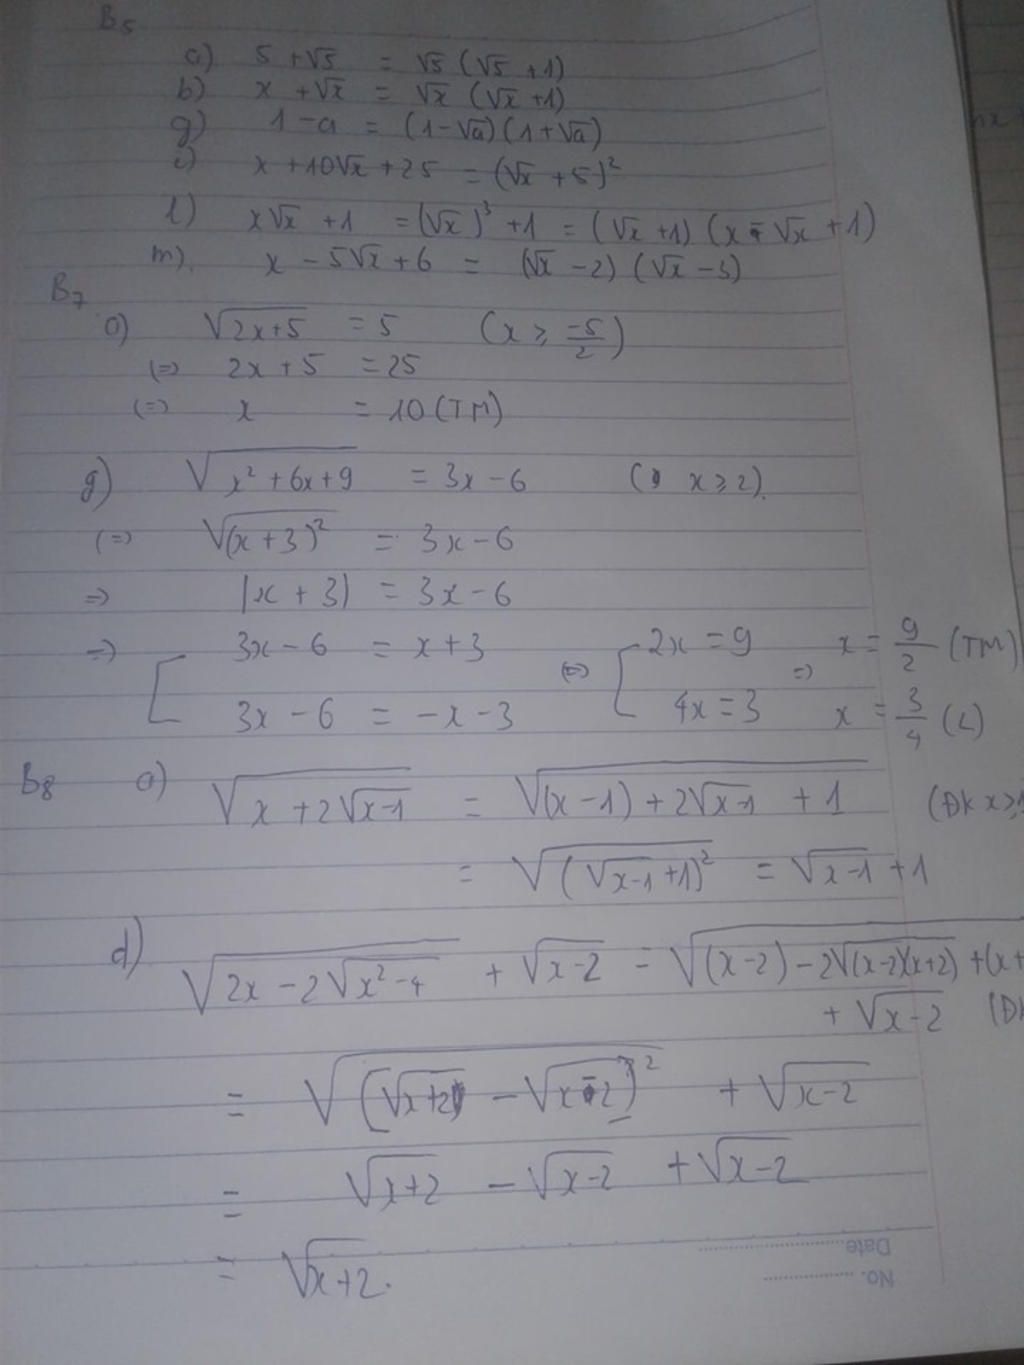 B5
a) 5 + √5 = √5 (√5 + 1)
b) x + √x = √x (√x + 1)
g) 1 - a = (1 - √a)(1 + √a)
i) x + 10√x + 25 = (√x + 5)²
l) x√x + 1 = (√x)³ + 1 = (√x + 1) (x - √x + 1)
m) x - 5√x + 6 = (√x - 2) (√x - 3)
B7
a) √(2x+5) = 5 (x ≥ -5/2)
(=) 2x + 5 = 25
(=) x = 10 (TM)
g) √(x² + 6x + 9) = 3x - 6 (x ≥ 2).
(=) √((x + 3)²) = 3x - 6
=) |x + 3| = 3x - 6
=) [ 3x - 6 = x + 3 (=) [ 2x = 9 =) x = 9/2 (TM)
3x - 6 = -x - 3 4x = 3 x = 3/4 (L)
B8 a) √(x + 2√(x-1)) = √((x - 1) + 2√(x-1) + 1) (ĐK x ≥ 1
= √((√(x-1) + 1)²) = √(x-1) + 1
d) √(2x - 2√(x² - 4)) + √(x-2) = √((x-2) - 2√((x-2)(x+2)) + (x+
+ √(x-2) (ĐK
= √((√(x+2) - √(x-2))²) + √(x-2)
= √(x+2) - √(x-2) + √(x-2)
= √(x+2).
Date
No.